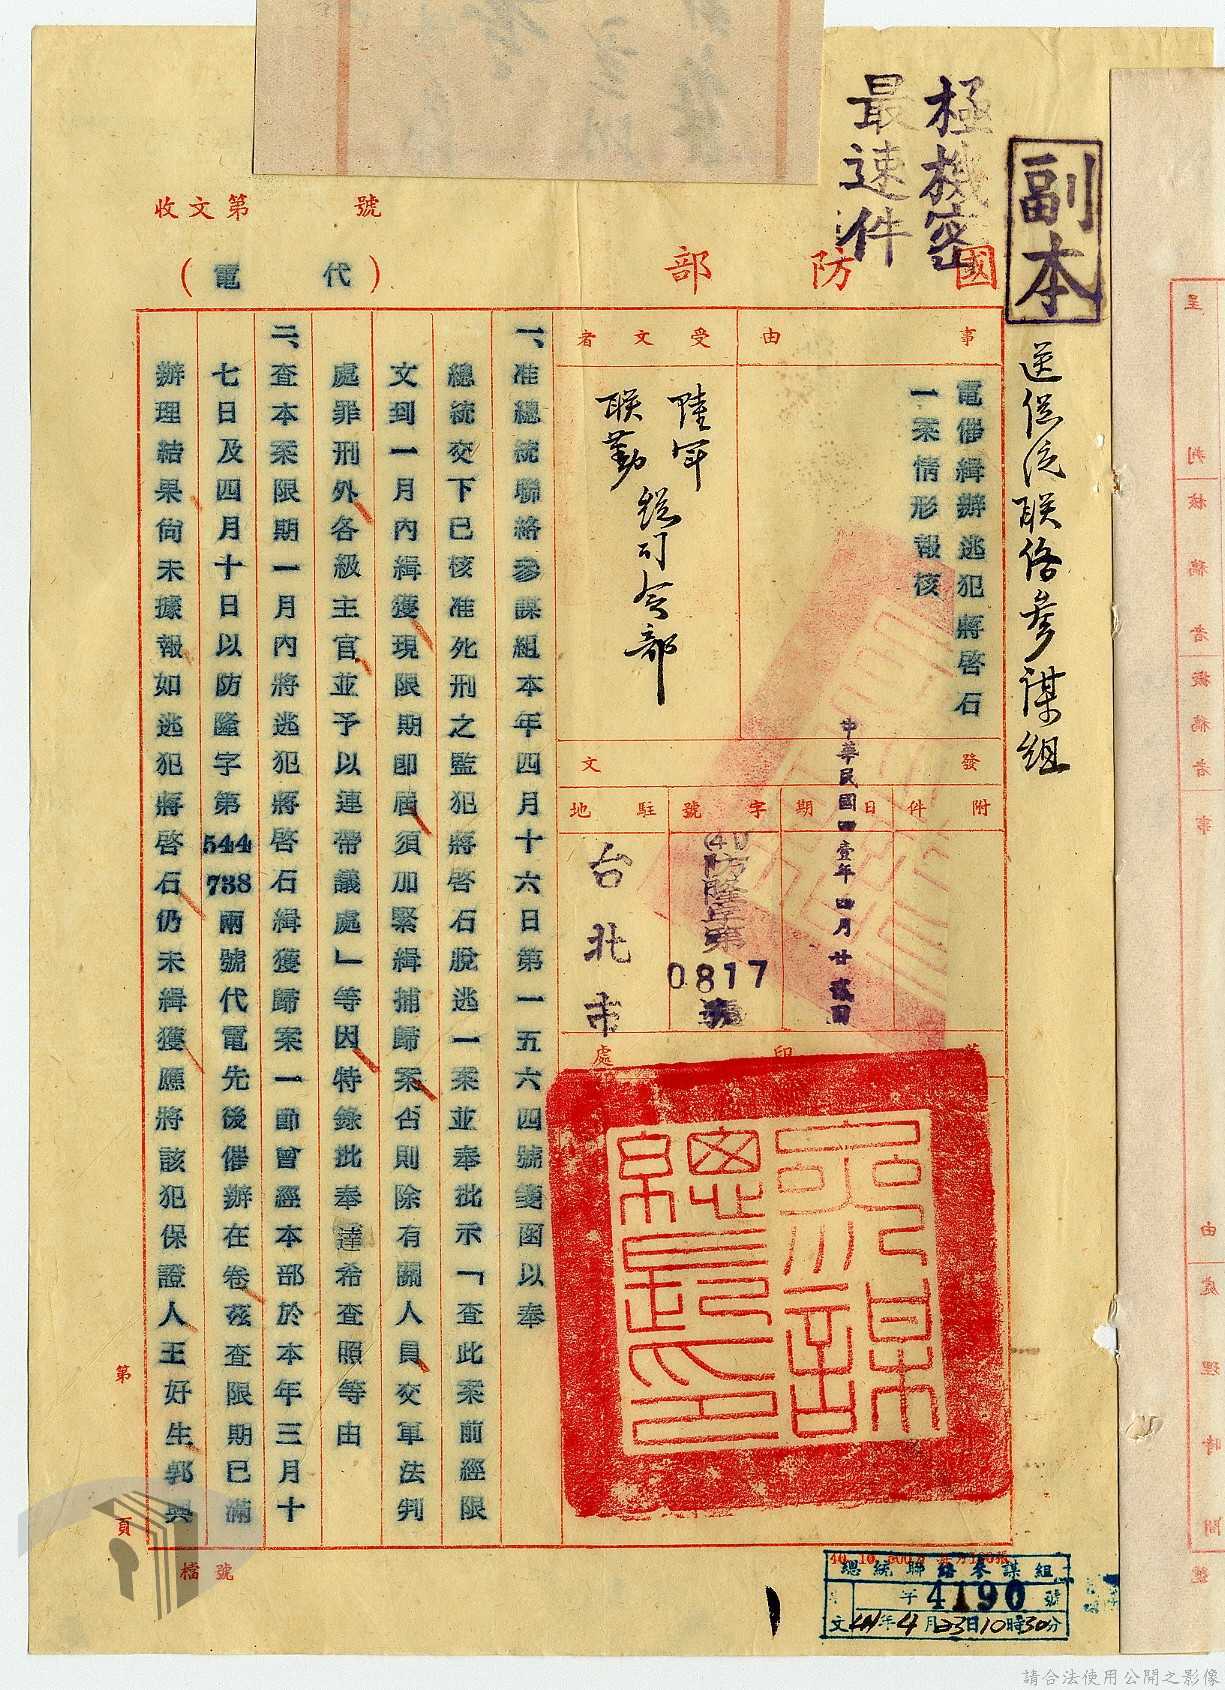 極機密
最速件
副本
送總統聯絡參謀組
收文第　　號
國防部
（代電）
事由
電催緝辦逃犯蔣啓石
一案情形報核
受文者
陸軍
聯勤
總司令部
發文
附件
日期
中華民國四壹年四月廿貳日
字號
(41)防隆字第
0817
號
駐地
台北市
印
處
參謀
總長印
一、准總統聯絡參謀組本年四月十六日第一五六四號箋函以奉
總統交下已核准死刑之監犯蔣啓石脫逃一案並奉批示「查此案前經限
文到一月內緝獲現限期即屆須加緊緝捕歸案否則除有關人員交軍法判
處罪刑外各級主官並予以連帶議處」等因特錄批奉達希查照等由
二、查本案限期一月內將逃犯蔣啓石緝獲歸案一節曾經本部於本年三月十
七日及四月十日以防隆字第544 738兩號代電先後催辦在卷茲查限期已滿
辦理結果尙未據報如逃犯蔣啓石仍未緝獲應將該犯保證人王好生郭興
第
頁
檔號
總統聯絡參謀組
字4190號
文41年4月23日10時30分
請合法使用公開之影像